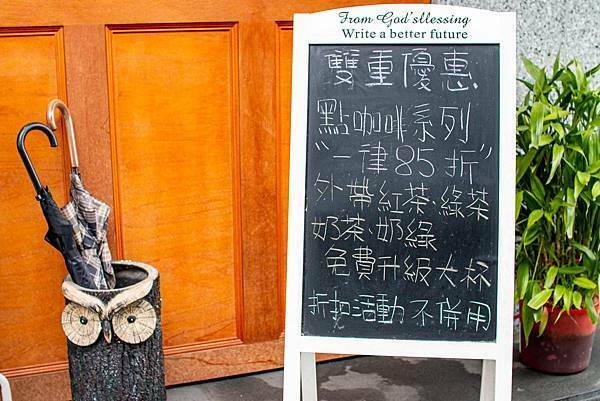 From God'sllessing
Write a better future
雙重優惠
點咖啡系列
"一律85折"
外帶紅茶.綠茶
奶茶.奶綠
免費升級大杯
折扣活動不併用